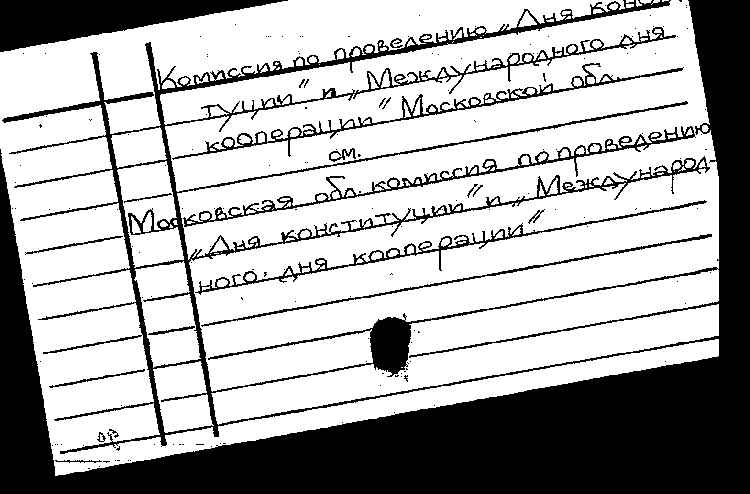 Комиссия по проведению „Дня консти-
туции" и „Международного дня
кооперации" Московской обл.
см.
Московская обл. комиссия по проведению
„Дня конституции" и „Международ-
ного дня кооперации"